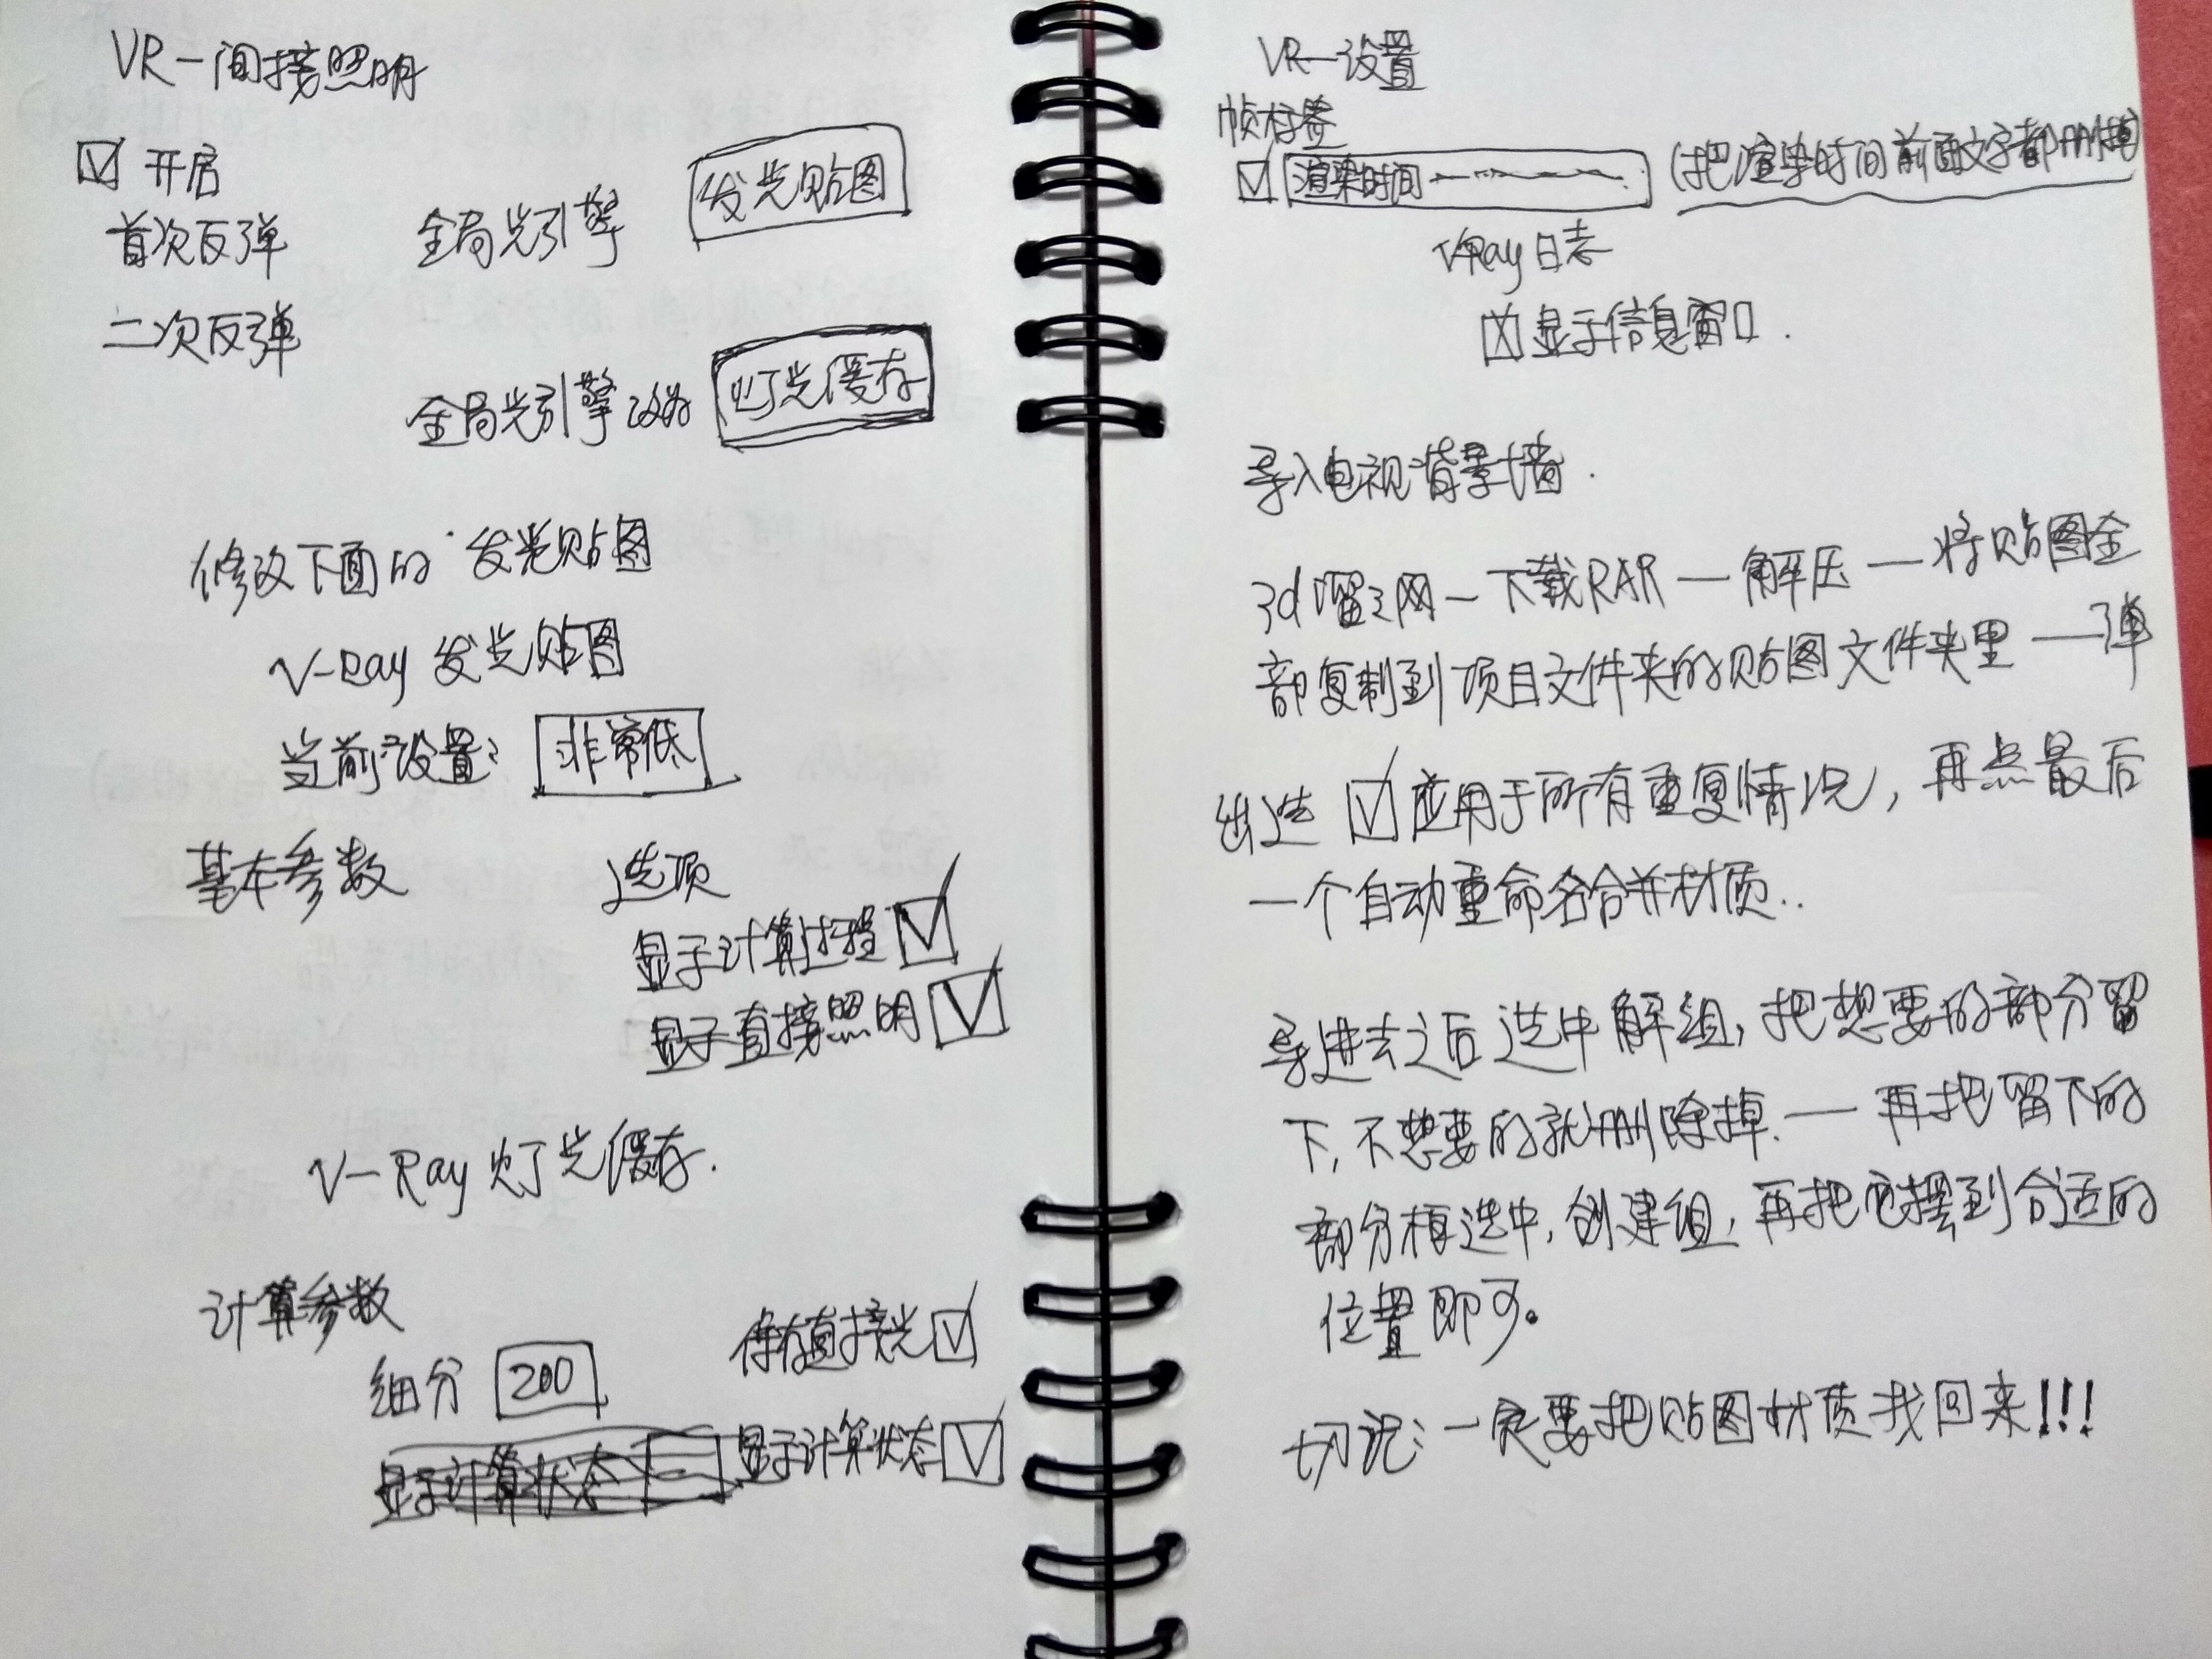 VR—间接照明
☑ 开启
首次反弹 全局光引擎 发光贴图
二次反弹
全局光引擎改为 灯光缓存
修改下面的 发光贴图
V-Ray 发光贴图
当前设置: 非常低
基本参数 选项
显示计算过程 ☑
显示直接照明 ☑
V-Ray 灯光缓存.
计算参数
细分 200 保存直接光 ☑
显示计算状态
显示计算状态 ☑
VR—设置
帧标签
☑ 渲染时间 (把渲染时间前面文字都删掉)
VRay 日志
☒ 显示信息窗口.
导入电视背景墙.
3d溜溜网—下载RAR—解压—将贴图全
部复制到项目文件夹的贴图文件夹里—弹
出选 ☑ 应用于所有重复情况, 再点最后
一个自动重命名合并材质..
导进去之后选中解组, 把想要的部分留
下, 不想要的就删除掉.—再把留下的
部分框选中, 创建组, 再把它摆到合适的
位置即可。
切记: 一定要把贴图材质找回来!!!